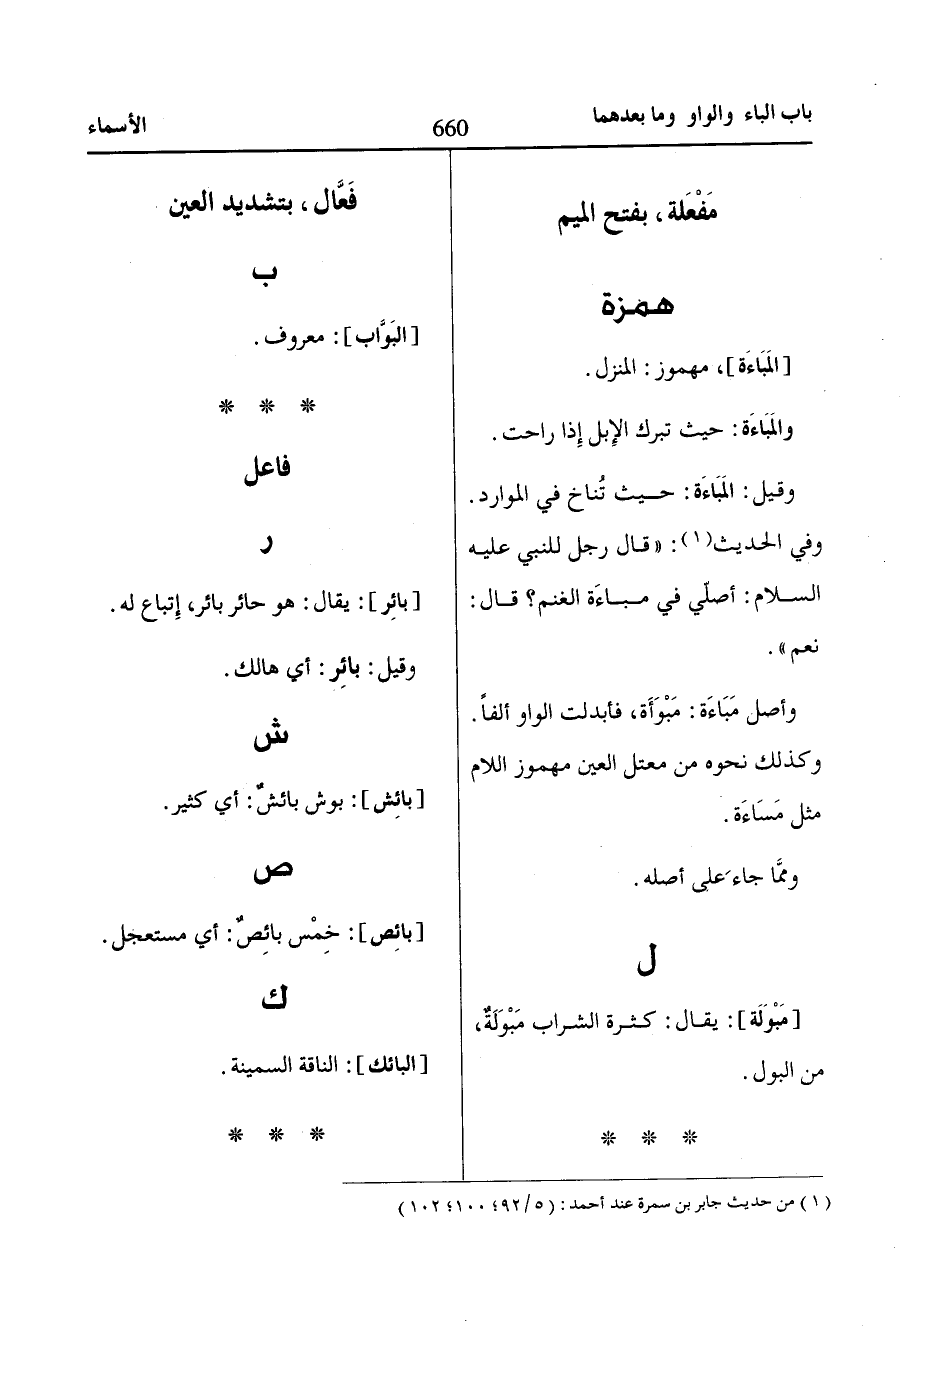 باب الباء والواو وما بعدهما
660
الأسماء
مَفْعَلة، بفتح الميم
همزة
[المَبَاءَة]، مهموز: المنزل.
والمَبَاءَة: حيث تبرك الإبل إذا راحت.
وقيل: المَبَاءَة: حيث تُناخ في الموارد.
وفي الحديث(١): «قال رجل للنبي عليه
السلام: أصلّي في مباءَة الغنم؟ قال:
نعم».
وأصل مَبَاءَة: مَبْوَأَة، فأبدلت الواو ألفاً.
وكذلك نحوه من معتل العين مهموز اللام
مثل مَسَاءَة.
وممَّا جاء على أصله.
ل
[مَبْوَلَة]: يقال: كثرة الشراب مَبْوَلَةٌ،
من البول.
* * *
فَعَّال، بتشديد العين
ب
[البَوَّاب]: معروف.
* * *
فاعل
ر
[بائِر]: يقال: هو حائر بائر، إتباع له.
وقيل: بائِر: أي هالك.
ش
[بائِش]: بوش بائشٌ: أي كثير.
ص
[بائِص]: خِمْس بائِصٌ: أي مستعجل.
ك
[البائك]: الناقة السمينة.
* * *
(١) من حديث جابر بن سمرة عند أحمد: (٥/٩٢؛ ١٠٠؛ ١٠٢)